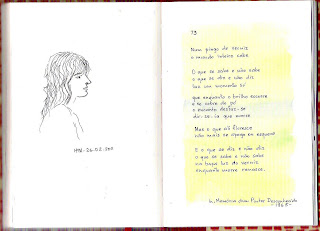 73
Num pingo de verniz
o mundo inteiro cabe
O que se sabe e não sabe
o que se diz e não diz
tem um momento só
que enquanto o brilho escorre
e se cobre de pó
o encanto desfaz-se
dir-se-ia que morre
Mas o que ali floresce
não mais se apaga ou esquece
E o que se diz e não diz
o que se sabe e não sabe
num pingo de verniz
enquanto morre renasce.
in, Memória dum Pintor Desconhecido
- 1965 -
26.02.